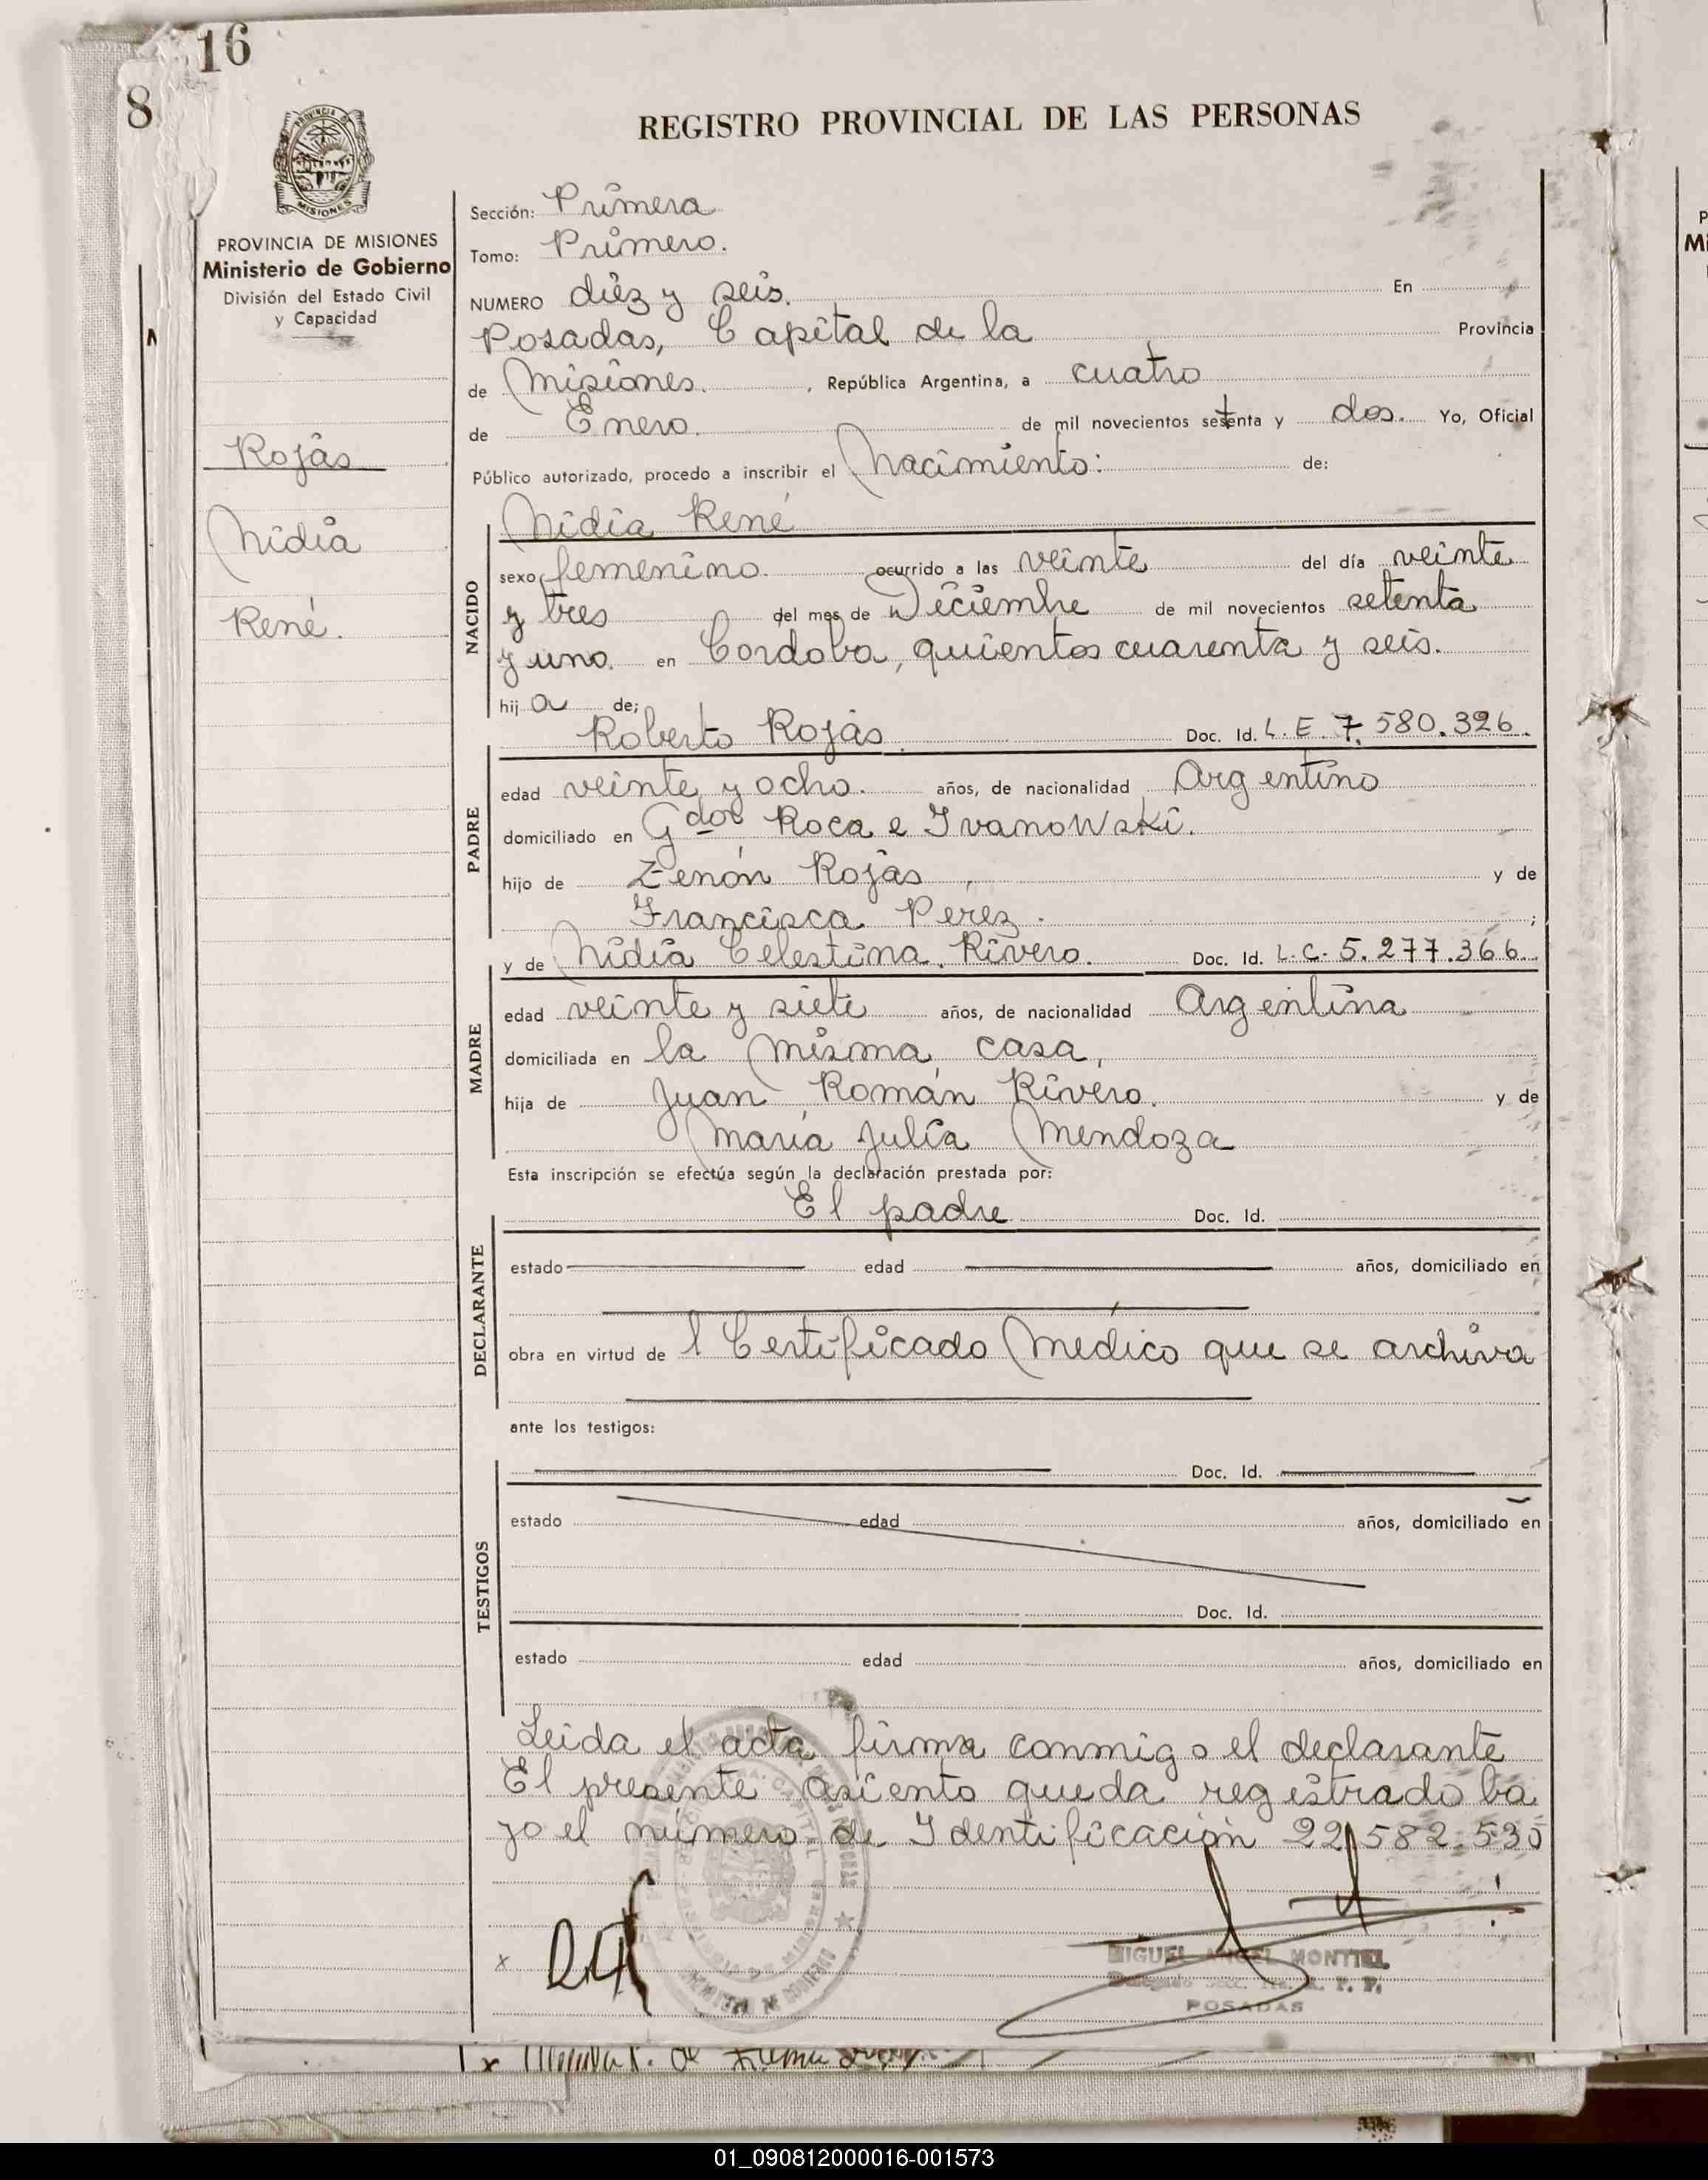 16
8
REGISTRO PROVINCIAL DE LAS PERSONAS
PROVINCIA DE MISIONES
Ministerio de Gobierno
División del Estado Civil
y Capacidad
Rojas
Nidia
René.
Sección: Primera
Tomo: Primero.
NUMERO diéz y seis. En
Posadas, Capital de la Provincia
de Misiones. , República Argentina, a cuatro
de Enero. de mil novecientos setenta y dos. Yo, Oficial
Público autorizado, procedo a inscribir el Nacimiento: de:
Nidia René
NACIDO
sexo femenino. ocurrido a las veinte del día veinte
y tres del mes de Diciembre de mil novecientos setenta
y uno. en Cordoba, quientos cuarenta y seis.
hij a de;
Roberto Rojas. Doc. Id. L.E. 7.580.326.
PADRE
edad veinte y ocho. años, de nacionalidad Argentino
domiciliado en Gdor Roca e Ivanowski.
hijo de Zenón Rojas, y de
Francisca Perez. ;
y de Nidia Celestina Rivero. Doc. Id. L.C. 5.277.366.
MADRE
edad veinte y siete años, de nacionalidad Argentina
domiciliada en la misma casa,
hija de Juan Román Rivero. y de
María Julia Mendoza
Esta inscripción se efectúa según la declaración prestada por:
El padre Doc. Id.
DECLARANTE
estado edad años, domiciliado en
obra en virtud de l Certificado Médico que se archiva
ante los testigos:
Doc. Id.
TESTIGOS
estado edad años, domiciliado en
Doc. Id.
estado edad años, domiciliado en
Leida el acta firma conmigo el declarante
El presente asiento queda registrado ba
jo el número de Identificación 22.582.535
x
MIGUEL ANGEL MONTIEL
POSADAS
01_090812000016-001573